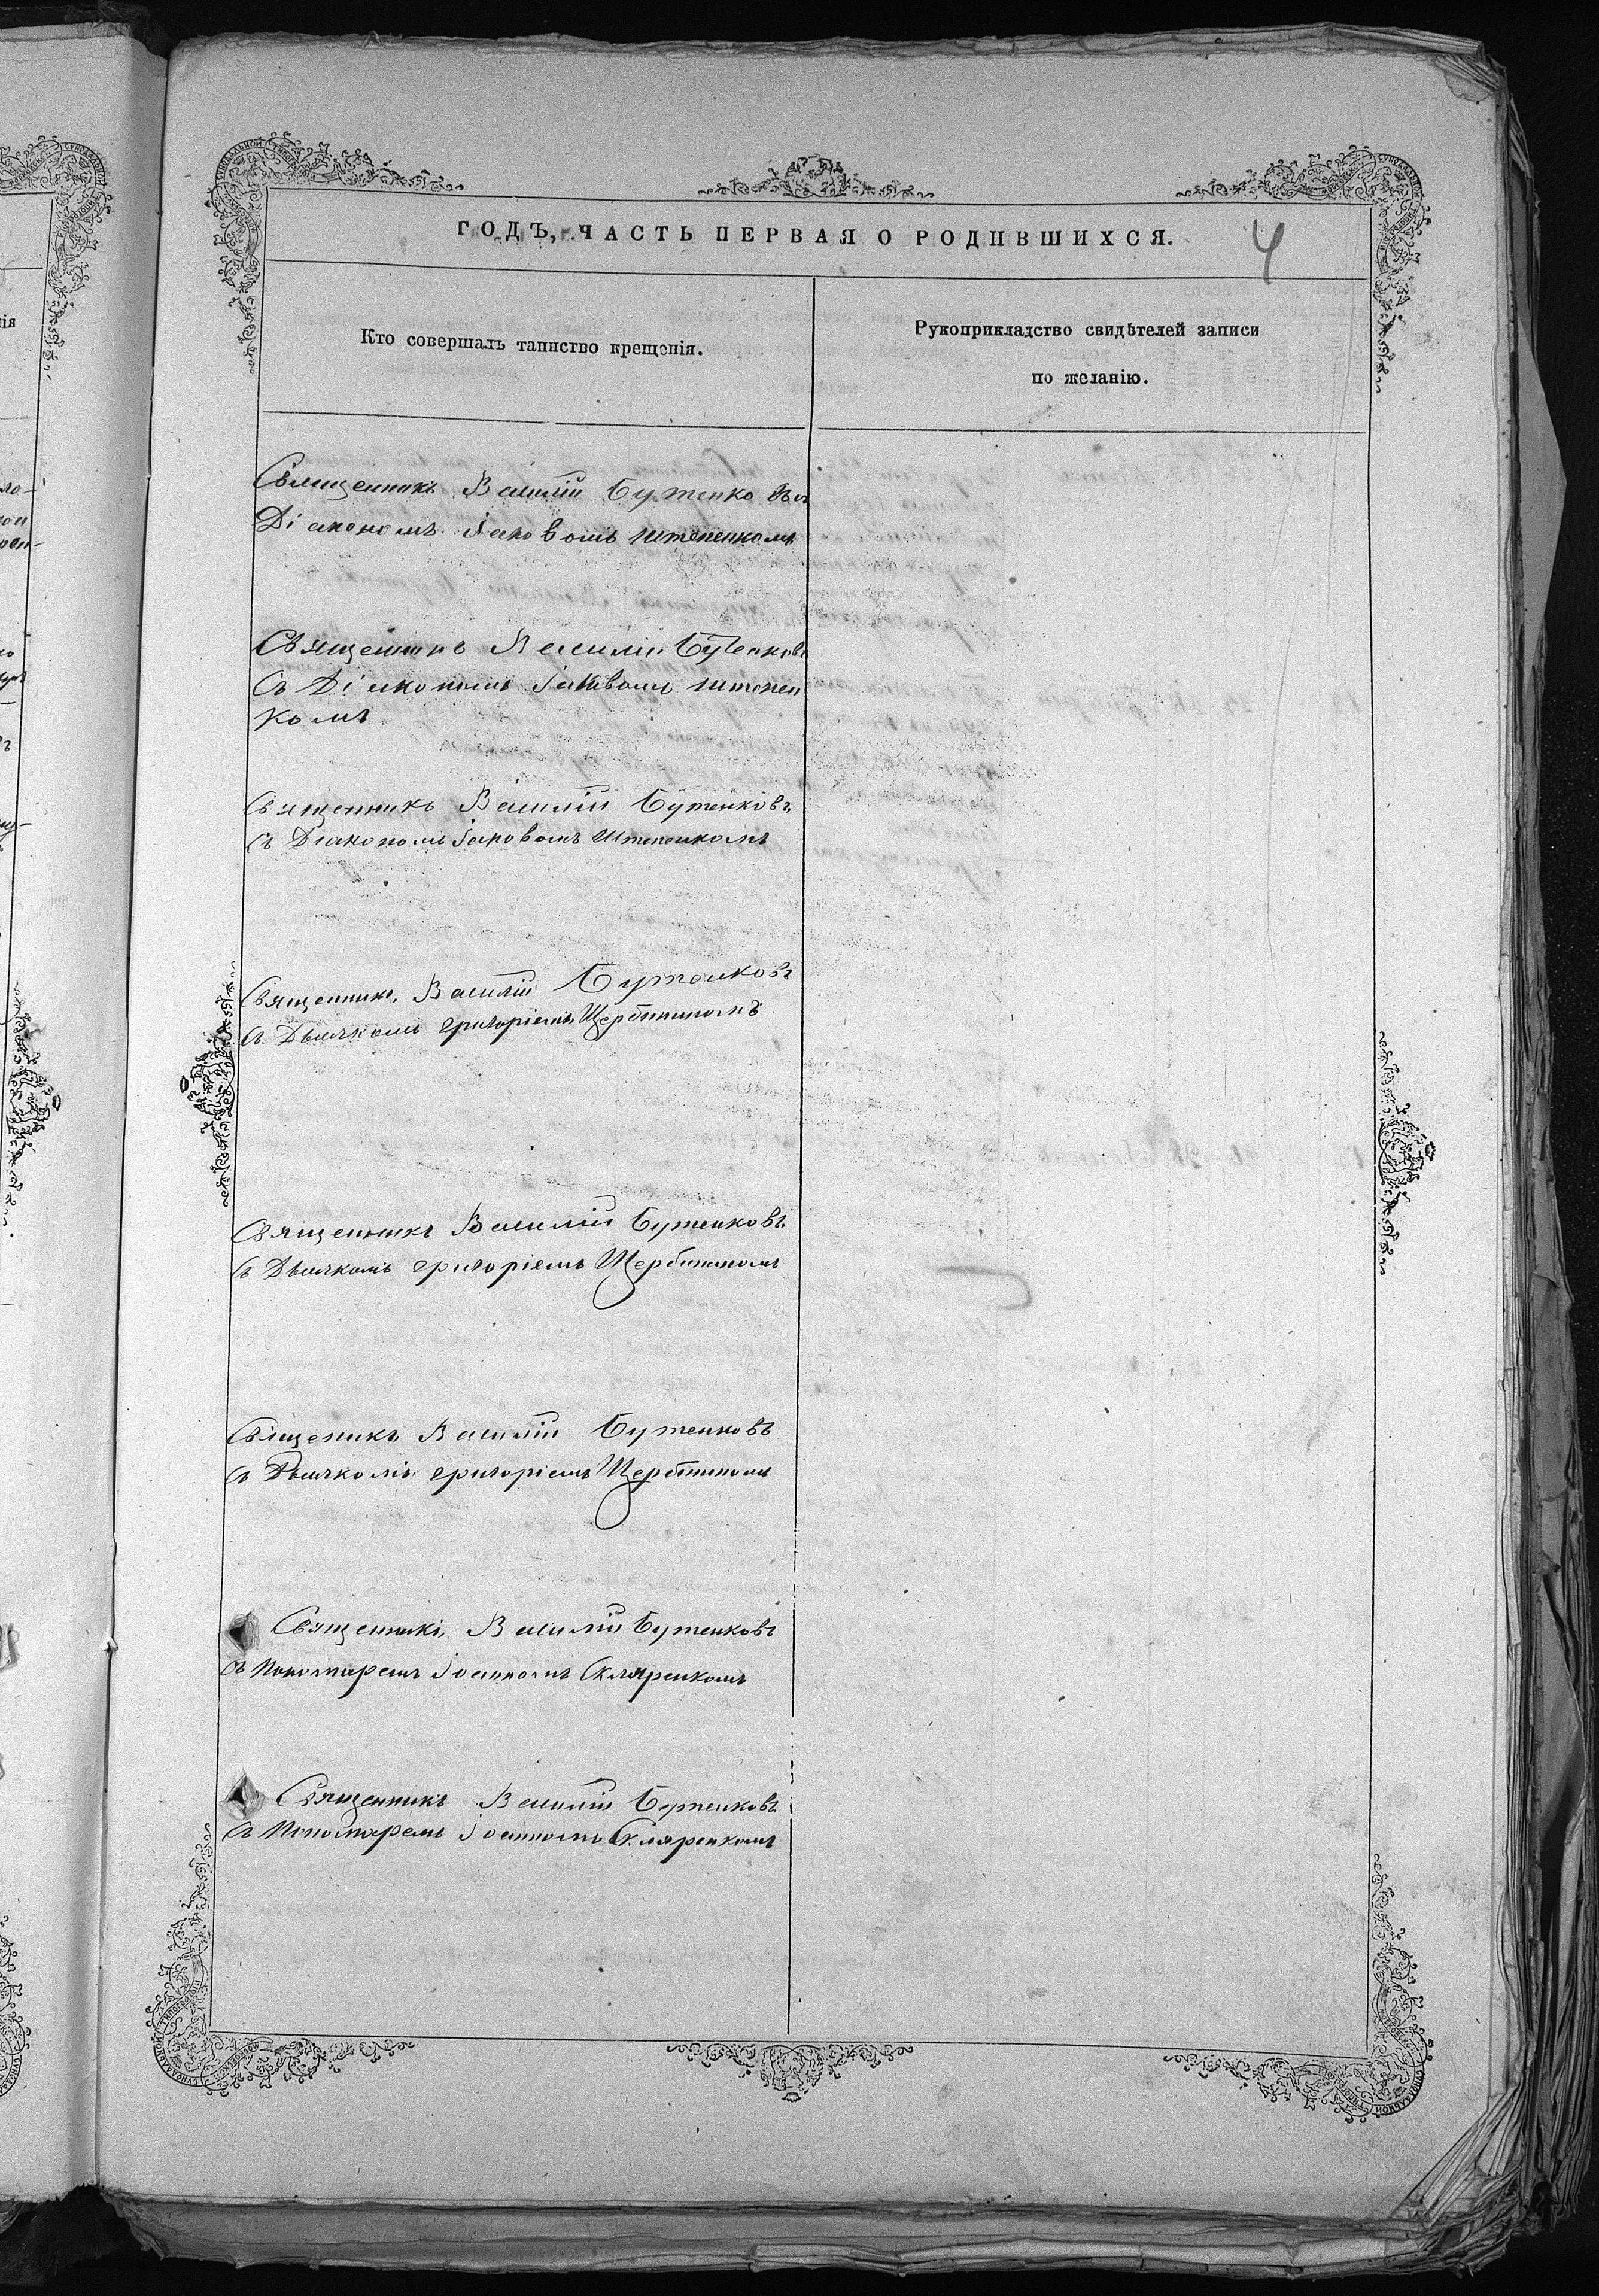 ГОДЪ, ЧАСТЬ ПЕРВАЯ О РОДИВШИХСЯ.
4
Кто совершалъ таинство крещенія.
Рукоприкладство свидѣтелей записи
по желанію.
Священникъ Василій Бутенко
Діакономъ Іаковомъ Штепенкомъ
Священникъ Василій Бутенковъ
Съ Діакономъ Іаковомъ Штепен
комъ
Священникъ Василій Бутенковъ
Съ Діакономъ Іаковомъ Штепенкомъ
Священникъ Василій Бутенковъ
Съ Дьячкомъ Григоріемъ Щербининомъ
Священникъ Василій Бутенковъ
Съ Дьячкомъ Григоріемъ Щербининомъ
Священикъ Василій Бутенковъ
Съ Дьячкомъ Григоріемъ Щербининомъ
Священникъ Василій Бутенковъ
Съ Пономаремъ Іоанномъ Скляренкомъ
Священникъ Василій Бутенковъ
Съ Пономаремъ Іоанномъ Скляренкомъ